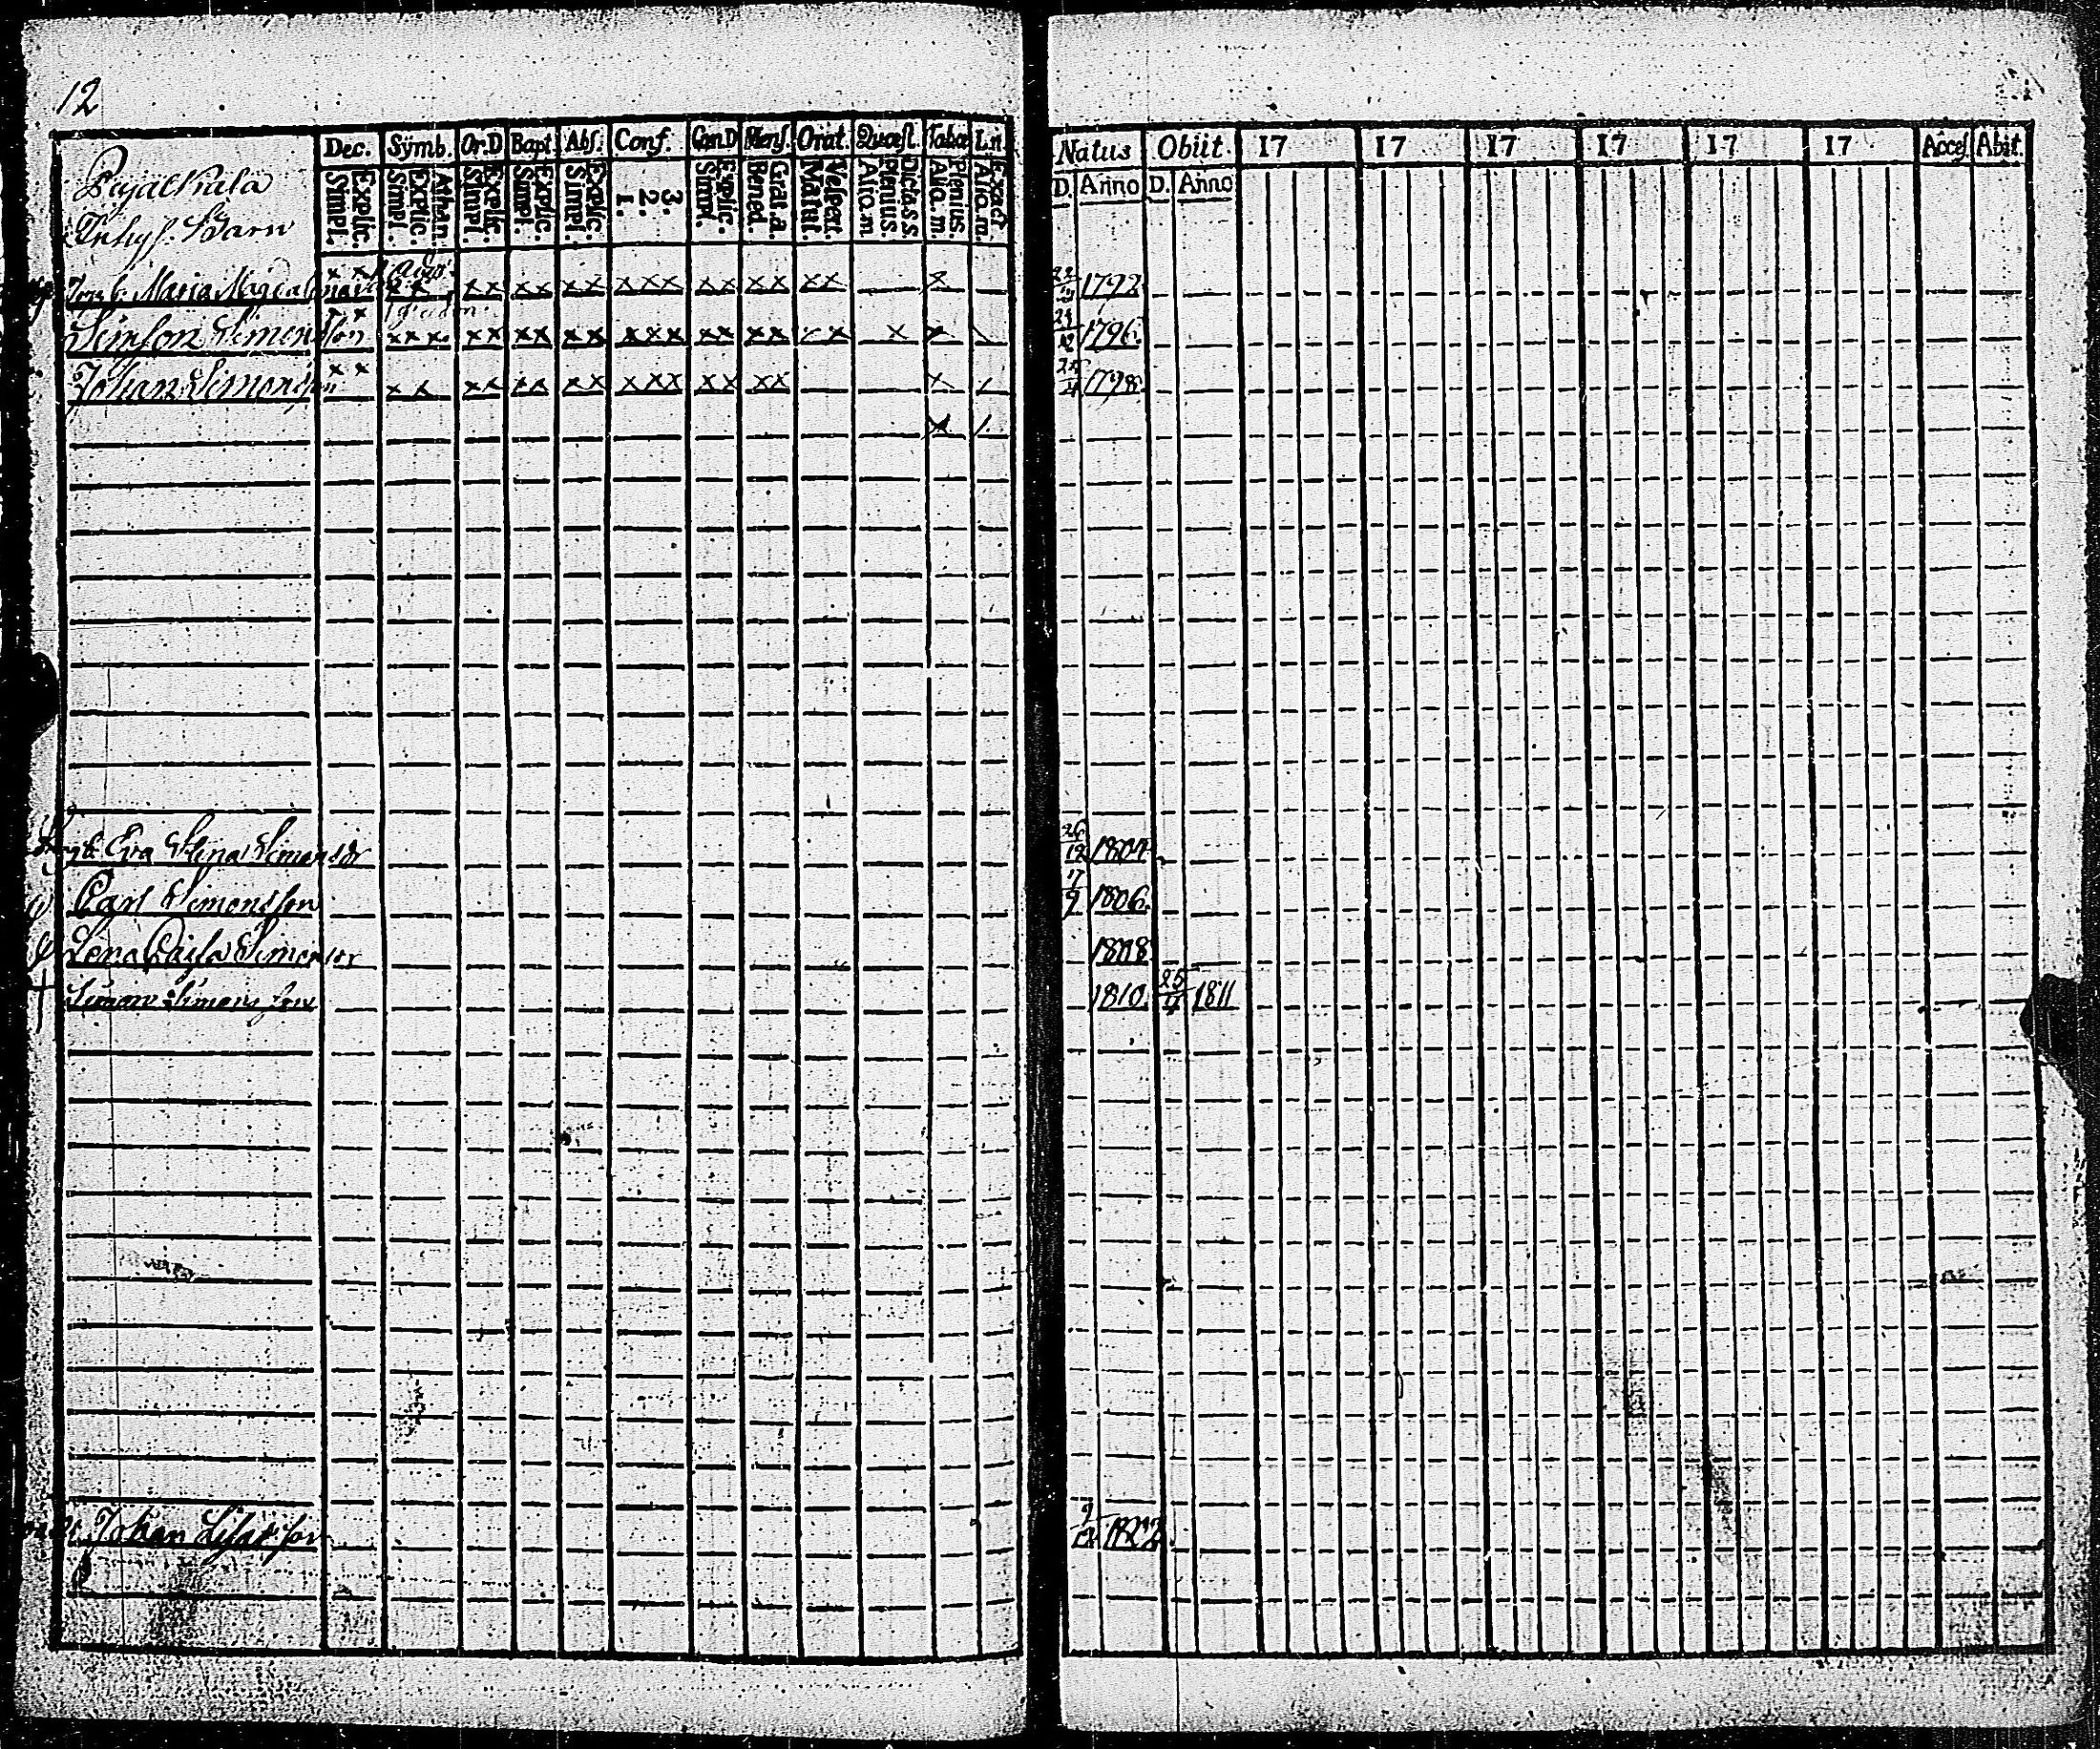 12
Dec. Symb. Or.D Bapt. Abs. Conf. Con.D Mens. Orat. Quæst. Tabæ L.n.
Simpl. Explic. Simpl. Explic. Athan. Simpl. Explic. Simpl. Explic. Simpl. Explic. 1. 2. 3. Simpl. Explic. Bened. Grat.a. Matut. Vesper. Alio.m. Plenius. Dicta.s.s. Alio.m. Plenius. A.ra.m. Exact
Natus Obiit 17 17 17 17 17 17 Acces. Abit.
D. Anno D. Anno
Pajalkala
Inhys. Barn
Maria Magdalena x x x x x x x x x x x x x x x x x x 1792
Simson Simonsson x x x x x x x x x x x x x x x x x x x x x x 1796
Johan Simonsson x x x x x x x x x x x x x x x x x x 24/4 1798
x /
Eva Stina Simonsdr 26/12 1804
Carl Simonsson 17/9 1806
Lena Caisa Simonsdr 1808
Simon Simonsson 1810 25/4 1811
Johan 9/12 1802